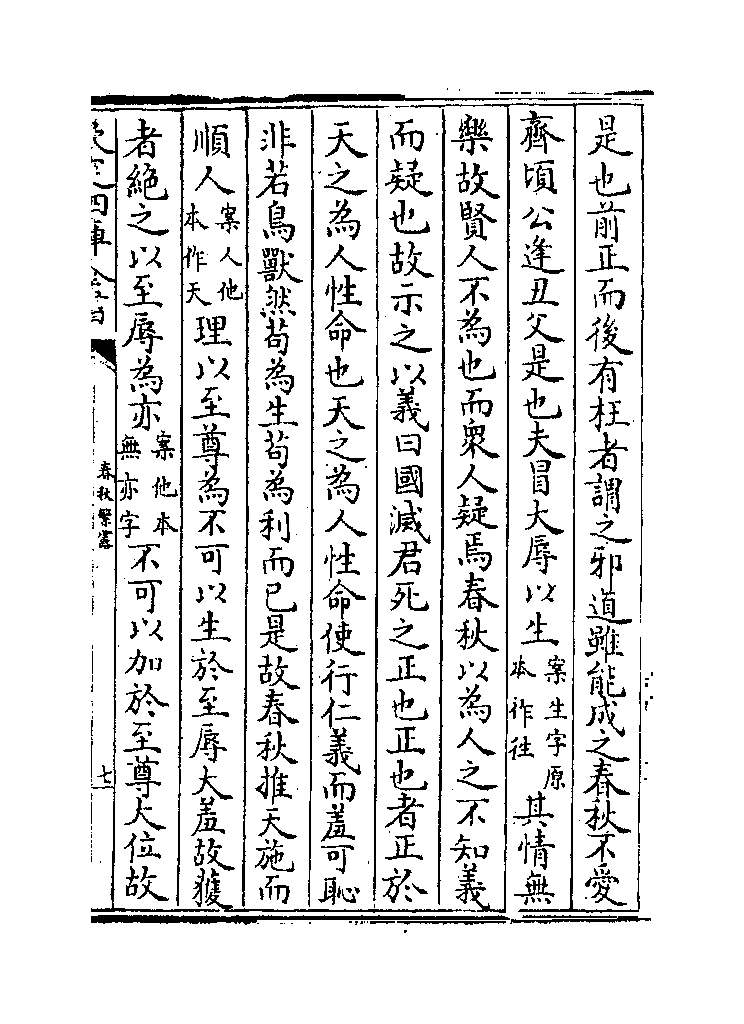 是也前正而後有枉者謂之邪道雖能成之春秋不愛
齊頃公逢丑父是也夫冒大辱以生案生字原本作往其情無
樂故賢人不為也而衆人疑焉春秋以為人之不知義
而疑也故示之以義曰國滅君死之正也正也者正於
天之為人性命也天之為人性命使行仁義而羞可恥
非若鳥獸然苟為生苟為利而已是故春秋推天施而
順人案人他本作天理以至尊為不可以生於至辱大羞故獲
者絶之以至辱為亦案他本無亦字不可以加於至尊大位故
欽定四庫全書
春秋繁露
七